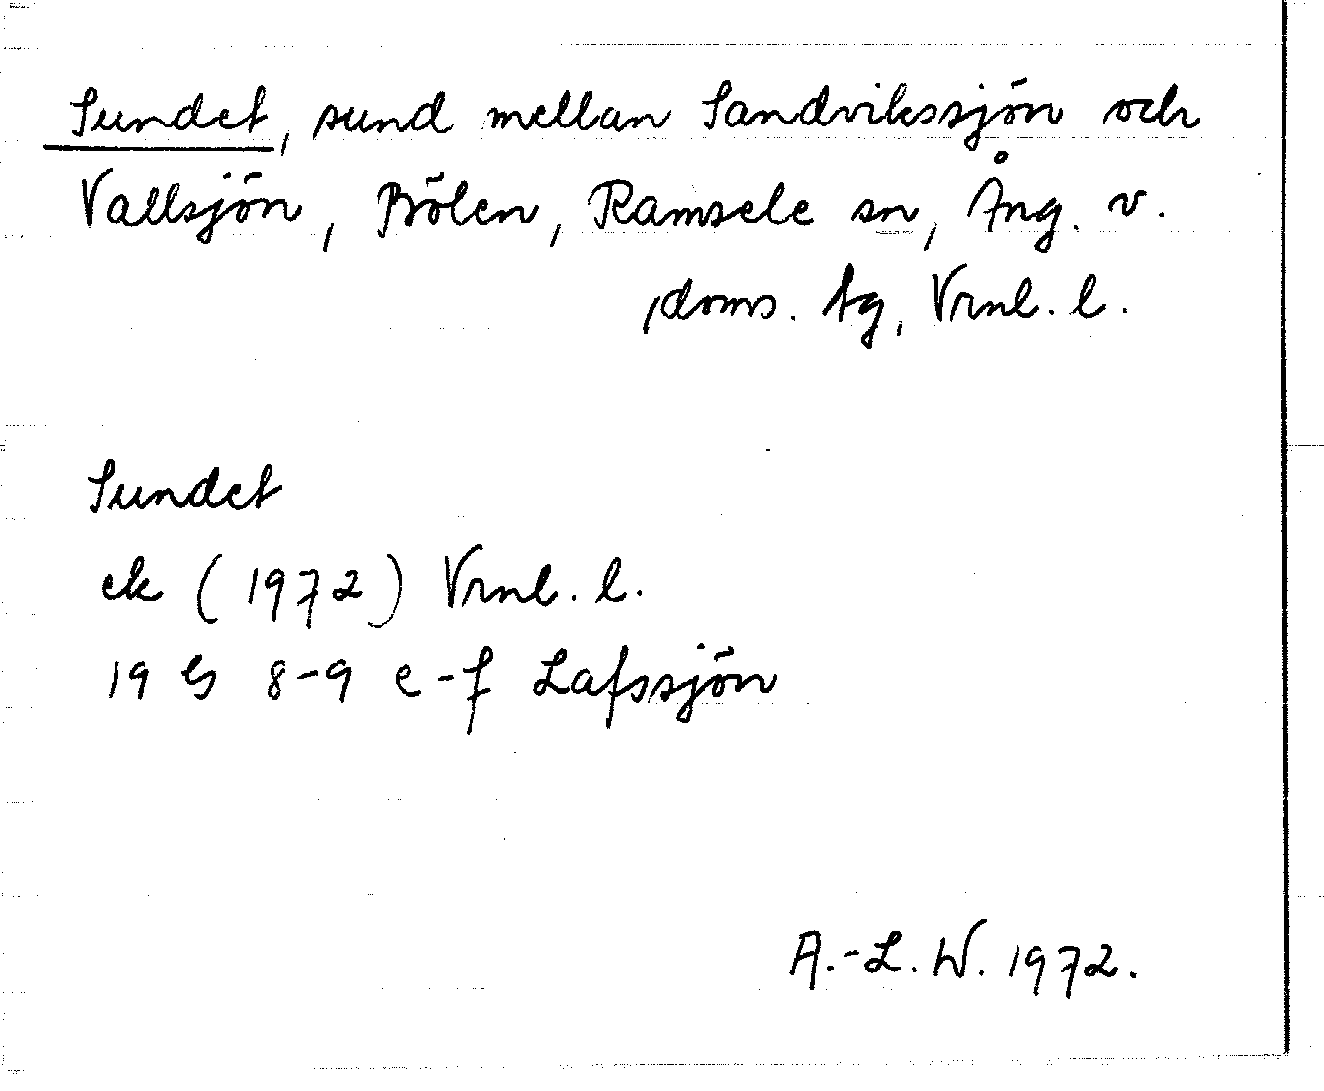 Sundet, sund mellan Sandvikssjön och
Vallsjön, Bölen, Ramsele sn, Ång. v.
doms. tg, Vrnl. l.
Sundet
ek (1972) Vrnl. l.
19 G 8-9 e-f Lafssjön
A.-L. W. 1972.